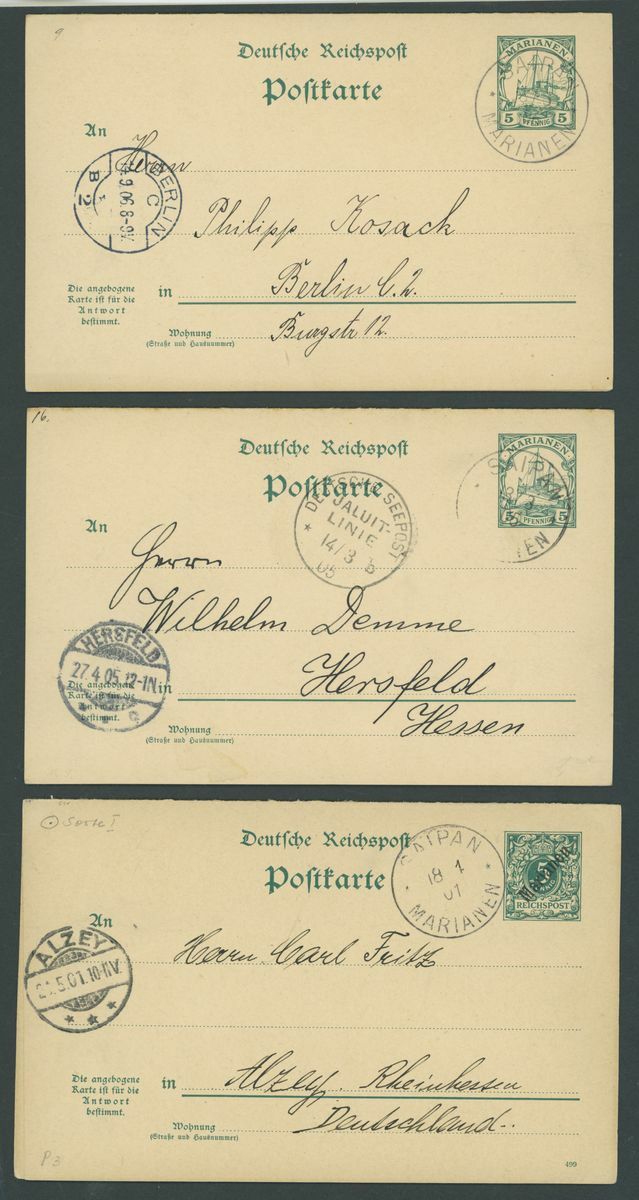 9
Deutsche Reichspost
Postkarte
MARIANEN
5 PFENNIG 5
SAIPAN
MARIANEN
An
Herrn
BERLIN
C
B 2
9.06.8-9V.
Philipp Kosack
in Berlin C. 2.
Burgstr 12.
Die angebogene
Karte ist für die
Antwort
bestimmt.
Wohnung
(Straße und Hausnummer)
16.
Deutsche Reichspost
Postkarte
MARIANEN
5 PFENNIG 5
SAIPAN
DEUTSCHE SEEPOST
JALUIT-
LINIE
14/3 b
05
An
Herrn
Wilhelm Demme
HERSFELD
27.4.05.12-1N
c
in Hersfeld
Hessen
Die angebogene
Karte ist für die
Antwort
bestimmt.
Wohnung
(Straße und Hausnummer)
Sorte I
Deutsche Reichspost
Postkarte
SAIPAN
18 4
01
MARIANEN
5
Marianen
REICHSPOST
An
Herrn Carl Fritz
ALZEY
5.01.10-11V.
in Alzey. Rheinhessen
Deutschland..
Die angebogene
Karte ist für die
Antwort
bestimmt.
Wohnung
(Straße und Hausnummer)
P3
499